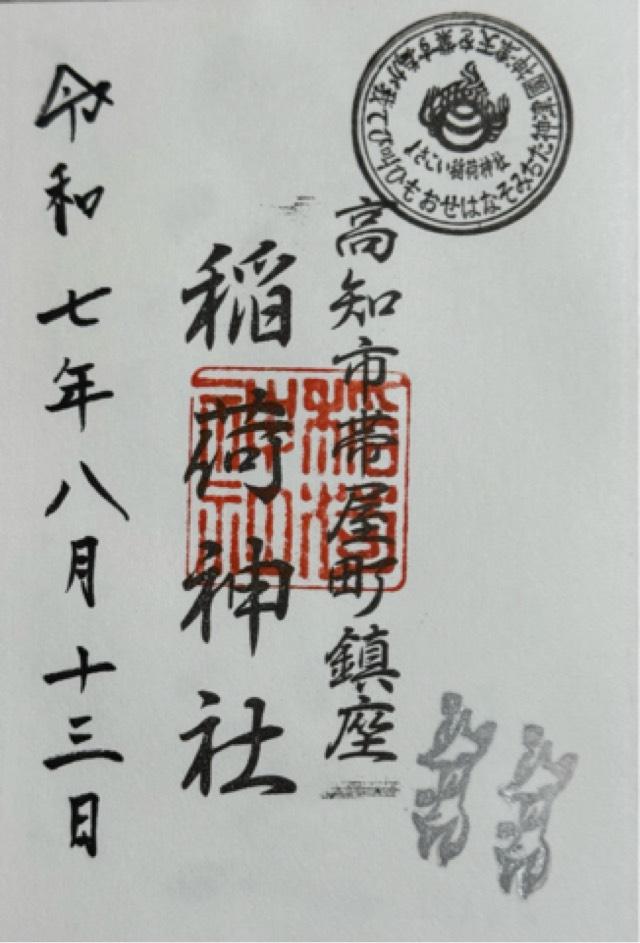 よさこい稲荷神社
高知市帯屋町鎮座
稲荷神社
令和七年八月十三日